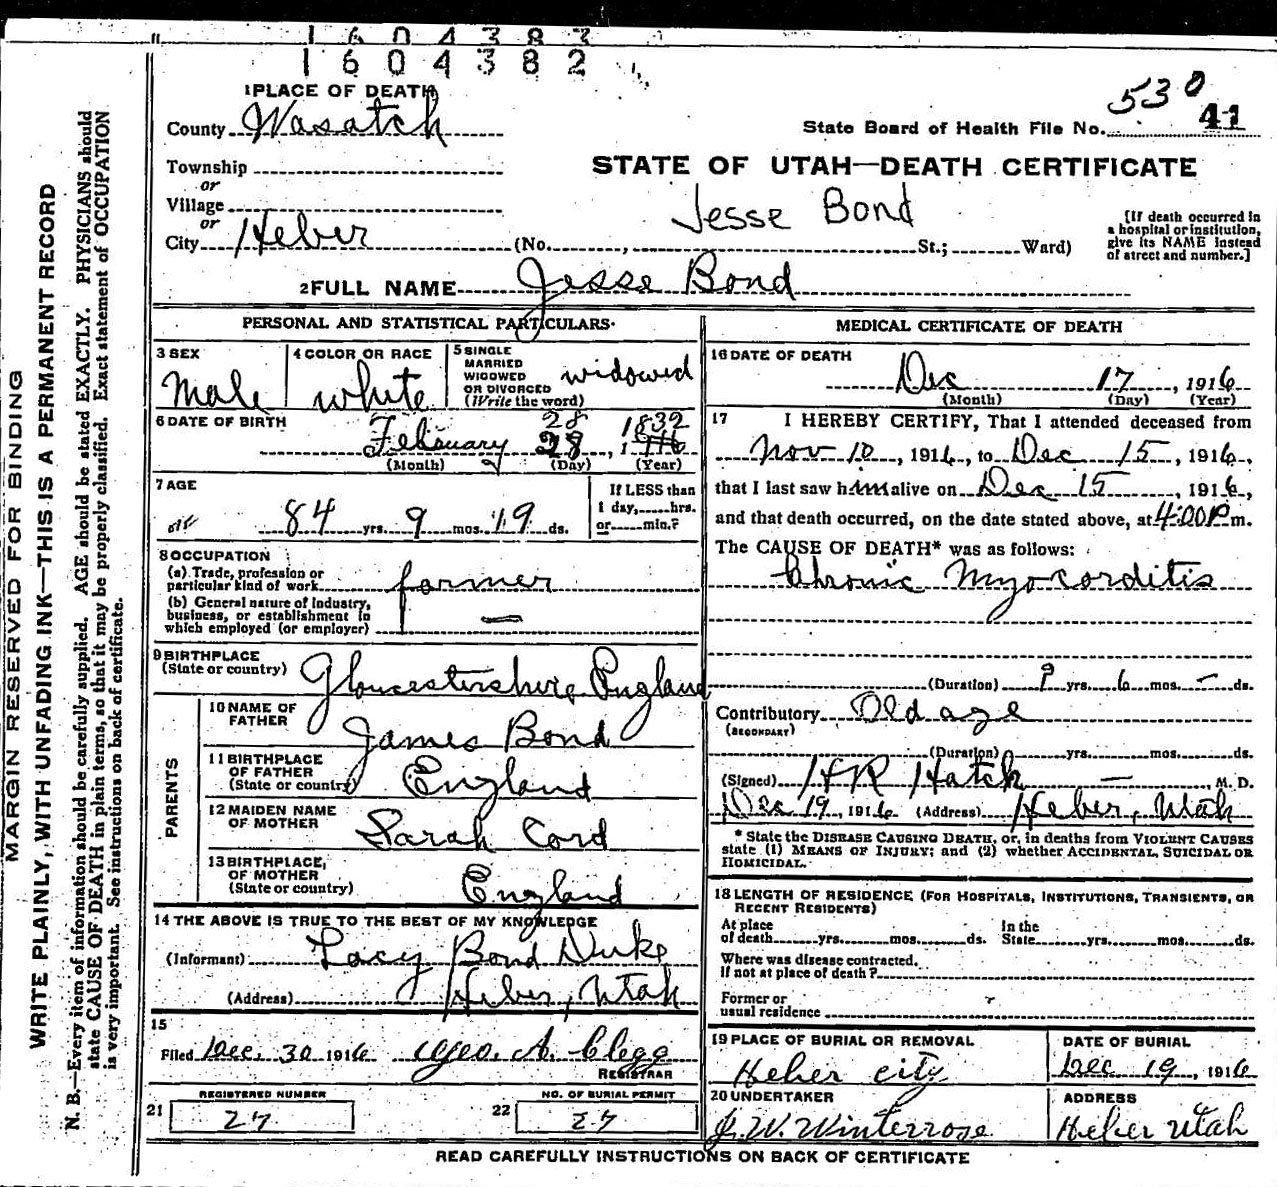 1 6 0 4 3 8 3
1 6 0 4 3 8 2
MARGIN RESERVED FOR BINDING
WRITE PLAINLY, WITH UNFADING INK—THIS IS A PERMANENT RECORD
N. B.—Every item of information should be carefully supplied. AGE should be stated EXACTLY. PHYSICIANS should
state CAUSE OF DEATH in plain terms, so that it may be properly classified. Exact statement of OCCUPATION
is very important. See instructions on back of certificate.
1 PLACE OF DEATH
County Wasatch
Township
or
Village
or
City Heber (No. , St.; Ward)
530
State Board of Health File No. 41
STATE OF UTAH—DEATH CERTIFICATE
Jesse Bond
[If death occurred in
a hospital or institution,
give its NAME instead
of street and number.]
2 FULL NAME Jesse Bond
PERSONAL AND STATISTICAL PARTICULARS
3 SEX
Male
4 COLOR OR RACE
white
5 SINGLE
MARRIED
WIDOWED
OR DIVORCED
(Write the word)
widowed
6 DATE OF BIRTH
28 1832
February 28, 1
(Month) (Day) (Year)
7 AGE
84 yrs. 9 mos. 19 ds.
If LESS than
1 day, hrs.
or min.?
8 OCCUPATION
(a) Trade, profession or
particular kind of work farmer
(b) General nature of industry,
business, or establishment in
which employed (or employer) —
9 BIRTHPLACE
(State or country) Gloucestershire England
PARENTS
10 NAME OF
FATHER James Bond
11 BIRTHPLACE
OF FATHER
(State or country) England
12 MAIDEN NAME
OF MOTHER Sarah Cord
13 BIRTHPLACE,
OF MOTHER
(State or country) England
14 THE ABOVE IS TRUE TO THE BEST OF MY KNOWLEDGE
(Informant) Lacy Bond Duke
(Address) Heber, Utah
15
Filed Dec. 30 1916 Geo. A. Clegg
REGISTRAR
21 REGISTERED NUMBER
27
22 NO. OF BURIAL PERMIT
27
MEDICAL CERTIFICATE OF DEATH
16 DATE OF DEATH
Dec 17, 1916
(Month) (Day) (Year)
17 I HEREBY CERTIFY, That I attended deceased from
Nov 10, 1916, to Dec 15, 1916,
that I last saw him alive on Dec 15, 1916,
and that death occurred, on the date stated above, at 4:00 P m.
The CAUSE OF DEATH* was as follows:
Chronic Myocorditis
(Duration) 9 yrs. 6 mos. — ds.
Contributory Old age
(SECONDARY)
(Duration) yrs. mos. ds.
(Signed) H R Hatch — M. D.
Dec 19, 1916 (Address) Heber, Utah
* State the DISEASE CAUSING DEATH, or, in deaths from VIOLENT CAUSES
state (1) MEANS OF INJURY; and (2) whether ACCIDENTAL, SUICIDAL OR
HOMICIDAL.
18 LENGTH OF RESIDENCE (FOR HOSPITALS, INSTITUTIONS, TRANSIENTS, OR
RECENT RESIDENTS)
At place
of death yrs. mos. ds.
In the
State yrs. mos. ds.
Where was disease contracted,
if not at place of death?
Former or
usual residence
19 PLACE OF BURIAL OR REMOVAL
Heber city
DATE OF BURIAL
Dec 19, 1916
20 UNDERTAKER
J. W. Winterrose
ADDRESS
Heber Utah
READ CAREFULLY INSTRUCTIONS ON BACK OF CERTIFICATE